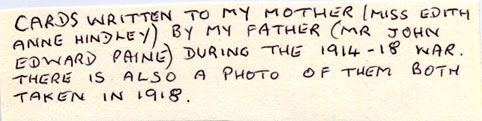 CARDS WRITTEN TO MY MOTHER (MISS EDITH
ANNE HINDLEY) BY MY FATHER (MR JOHN
EDWARD PAINE) DURING THE 1914-18 WAR.
THERE IS ALSO A PHOTO OF THEM BOTH
TAKEN IN 1918.